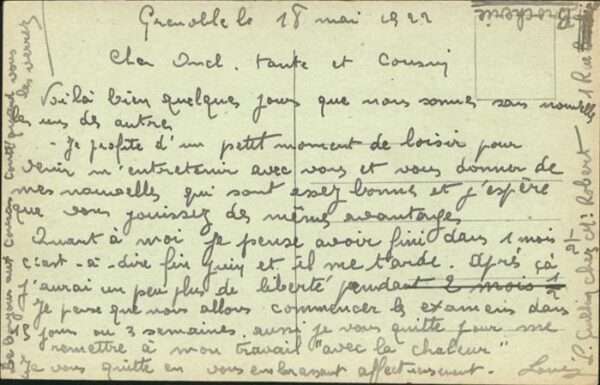 Grenoble le 18 mai 1922
Cher Oncle, tante et Cousin
Voilà bien quelques jours que nous sommes sans nouvelles
les uns des autres
- Je profite d'un petit moment de loisir pour
venir m'entretenir avec vous et vous donner de
mes nouvelles qui sont assez bonnes et j'espère
que vous jouissez des mêmes avantages
Quant à moi je pense avoir fini dans 1 mois
c'est-à-dire fin juin et il me tarde. Après ça
j'aurai un peu plus de liberté pendant 2 mois 1/2
Je pense que nous allons commencer les examens dans
15 jours ou 3 semaines. aussi je vous quitte pour me
remettre à mon travail "avec la chaleur"
Je vous quitte en vous embrassant affectueusement. Louis
bonjour aux quand vous
les verrez
chez Mr Robert - 1 Rue
Brocherie